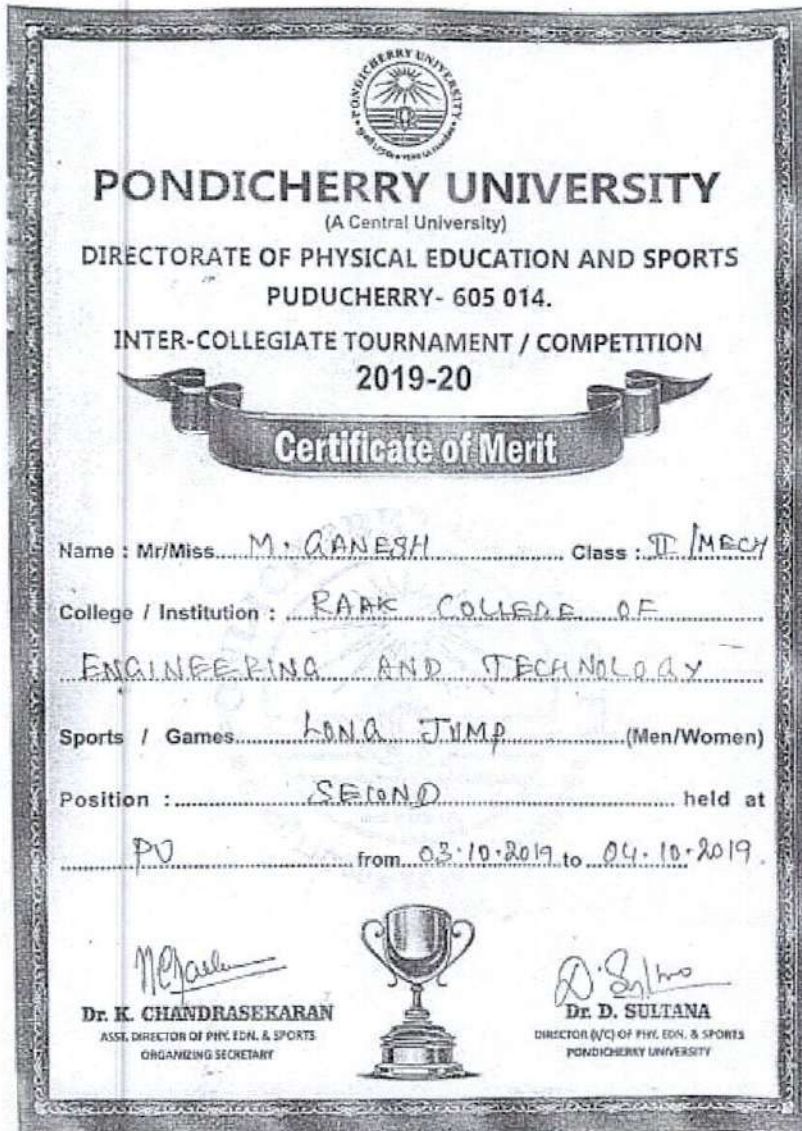 PONDICHERRY UNIVERSITY
PONDICHERRY UNIVERSITY
(A Central University)
DIRECTORATE OF PHYSICAL EDUCATION AND SPORTS
PUDUCHERRY- 605 014.
INTER-COLLEGIATE TOURNAMENT / COMPETITION
2019-20
Certificate of Merit
Name : Mr/Miss.... M. GANESH .... Class : II / MECH
College / Institution : RAAK COLLEGE OF
ENGINEERING AND TECHNOLOGY
Sports / Games.... LONG JUMP .... (Men/Women)
Position :.... SECOND .... held at
PU .... from 03.10.2019 to 04.10.2019.
Dr. K. CHANDRASEKARAN
ASST. DIRECTOR OF PHY. EDN. & SPORTS
ORGANIZING SECRETARY
Dr. D. SULTANA
DIRECTOR (I/C) OF PHY. EDN. & SPORTS
PONDICHERRY UNIVERSITY